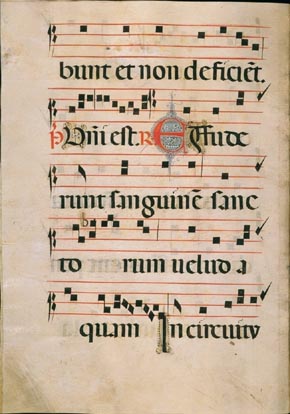 bunt et non deficiēt.
P̄ Dn̄i est. R Effude
runt sanguinē sanc
to rum uelud a
quam In circuitu